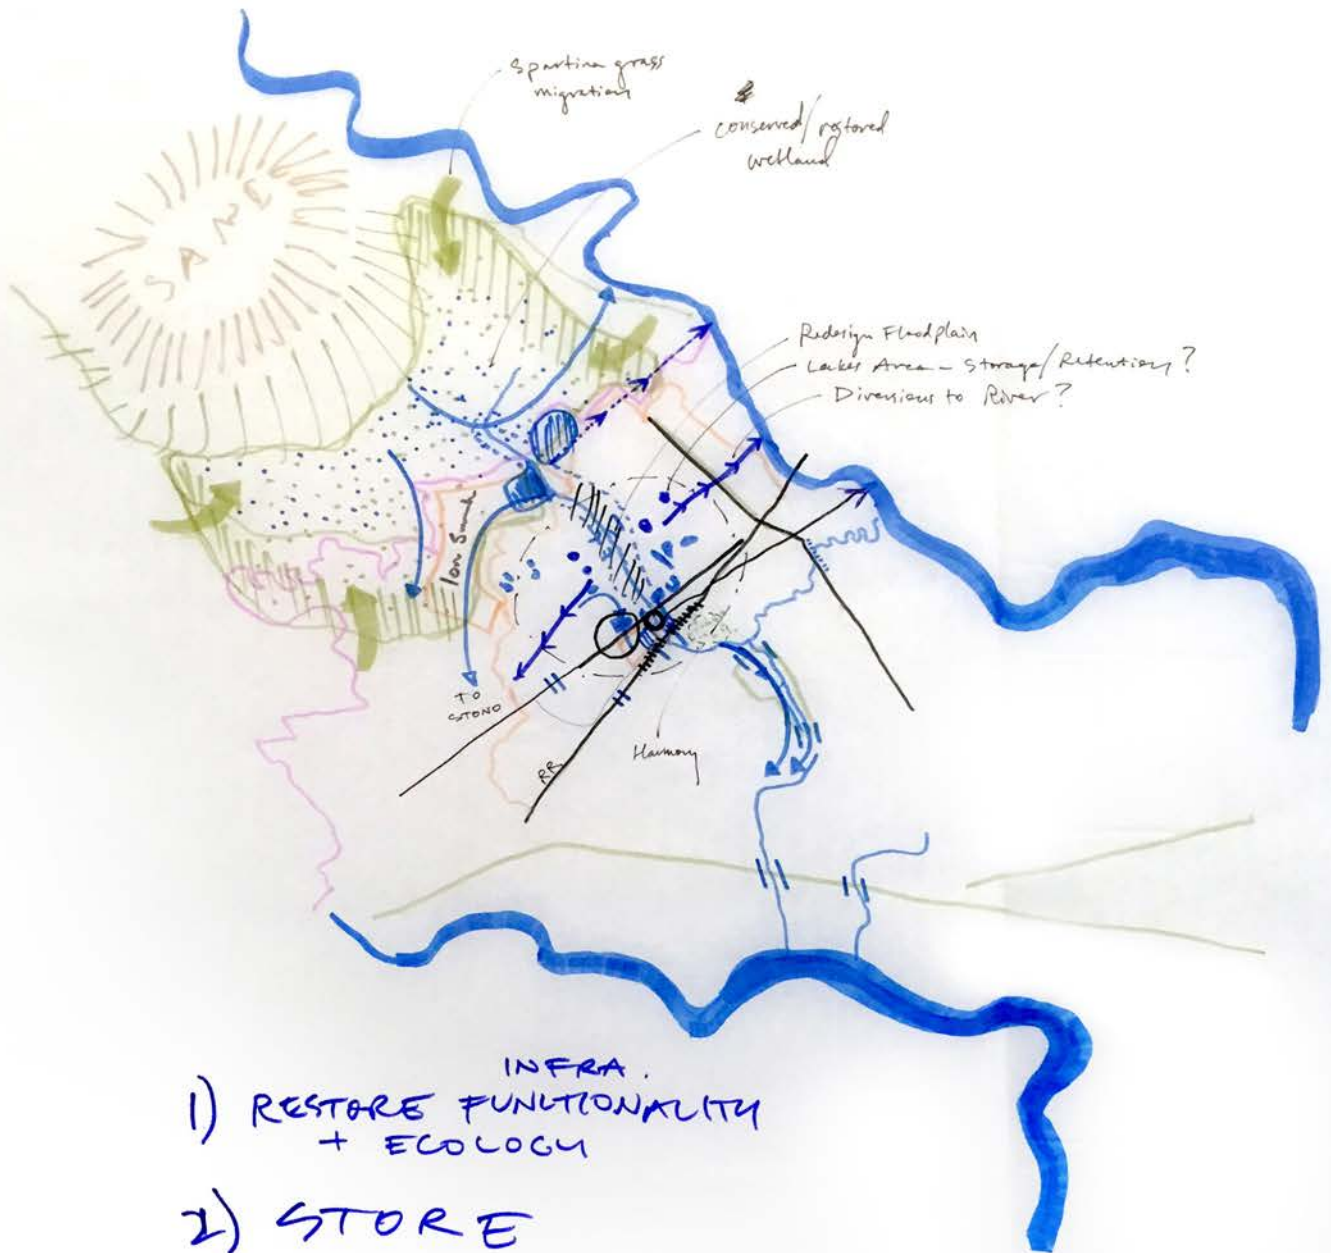 Spartina grass
migration
conserved/restored
wetland
SAND
Redesign Floodplain
Lakes Area - Storage/Retention?
Diversions to River?
TO
STONO
RR
Harmony
INFRA.
1) RESTORE FUNCTIONALITY
+ ECOLOGY
2) STORE